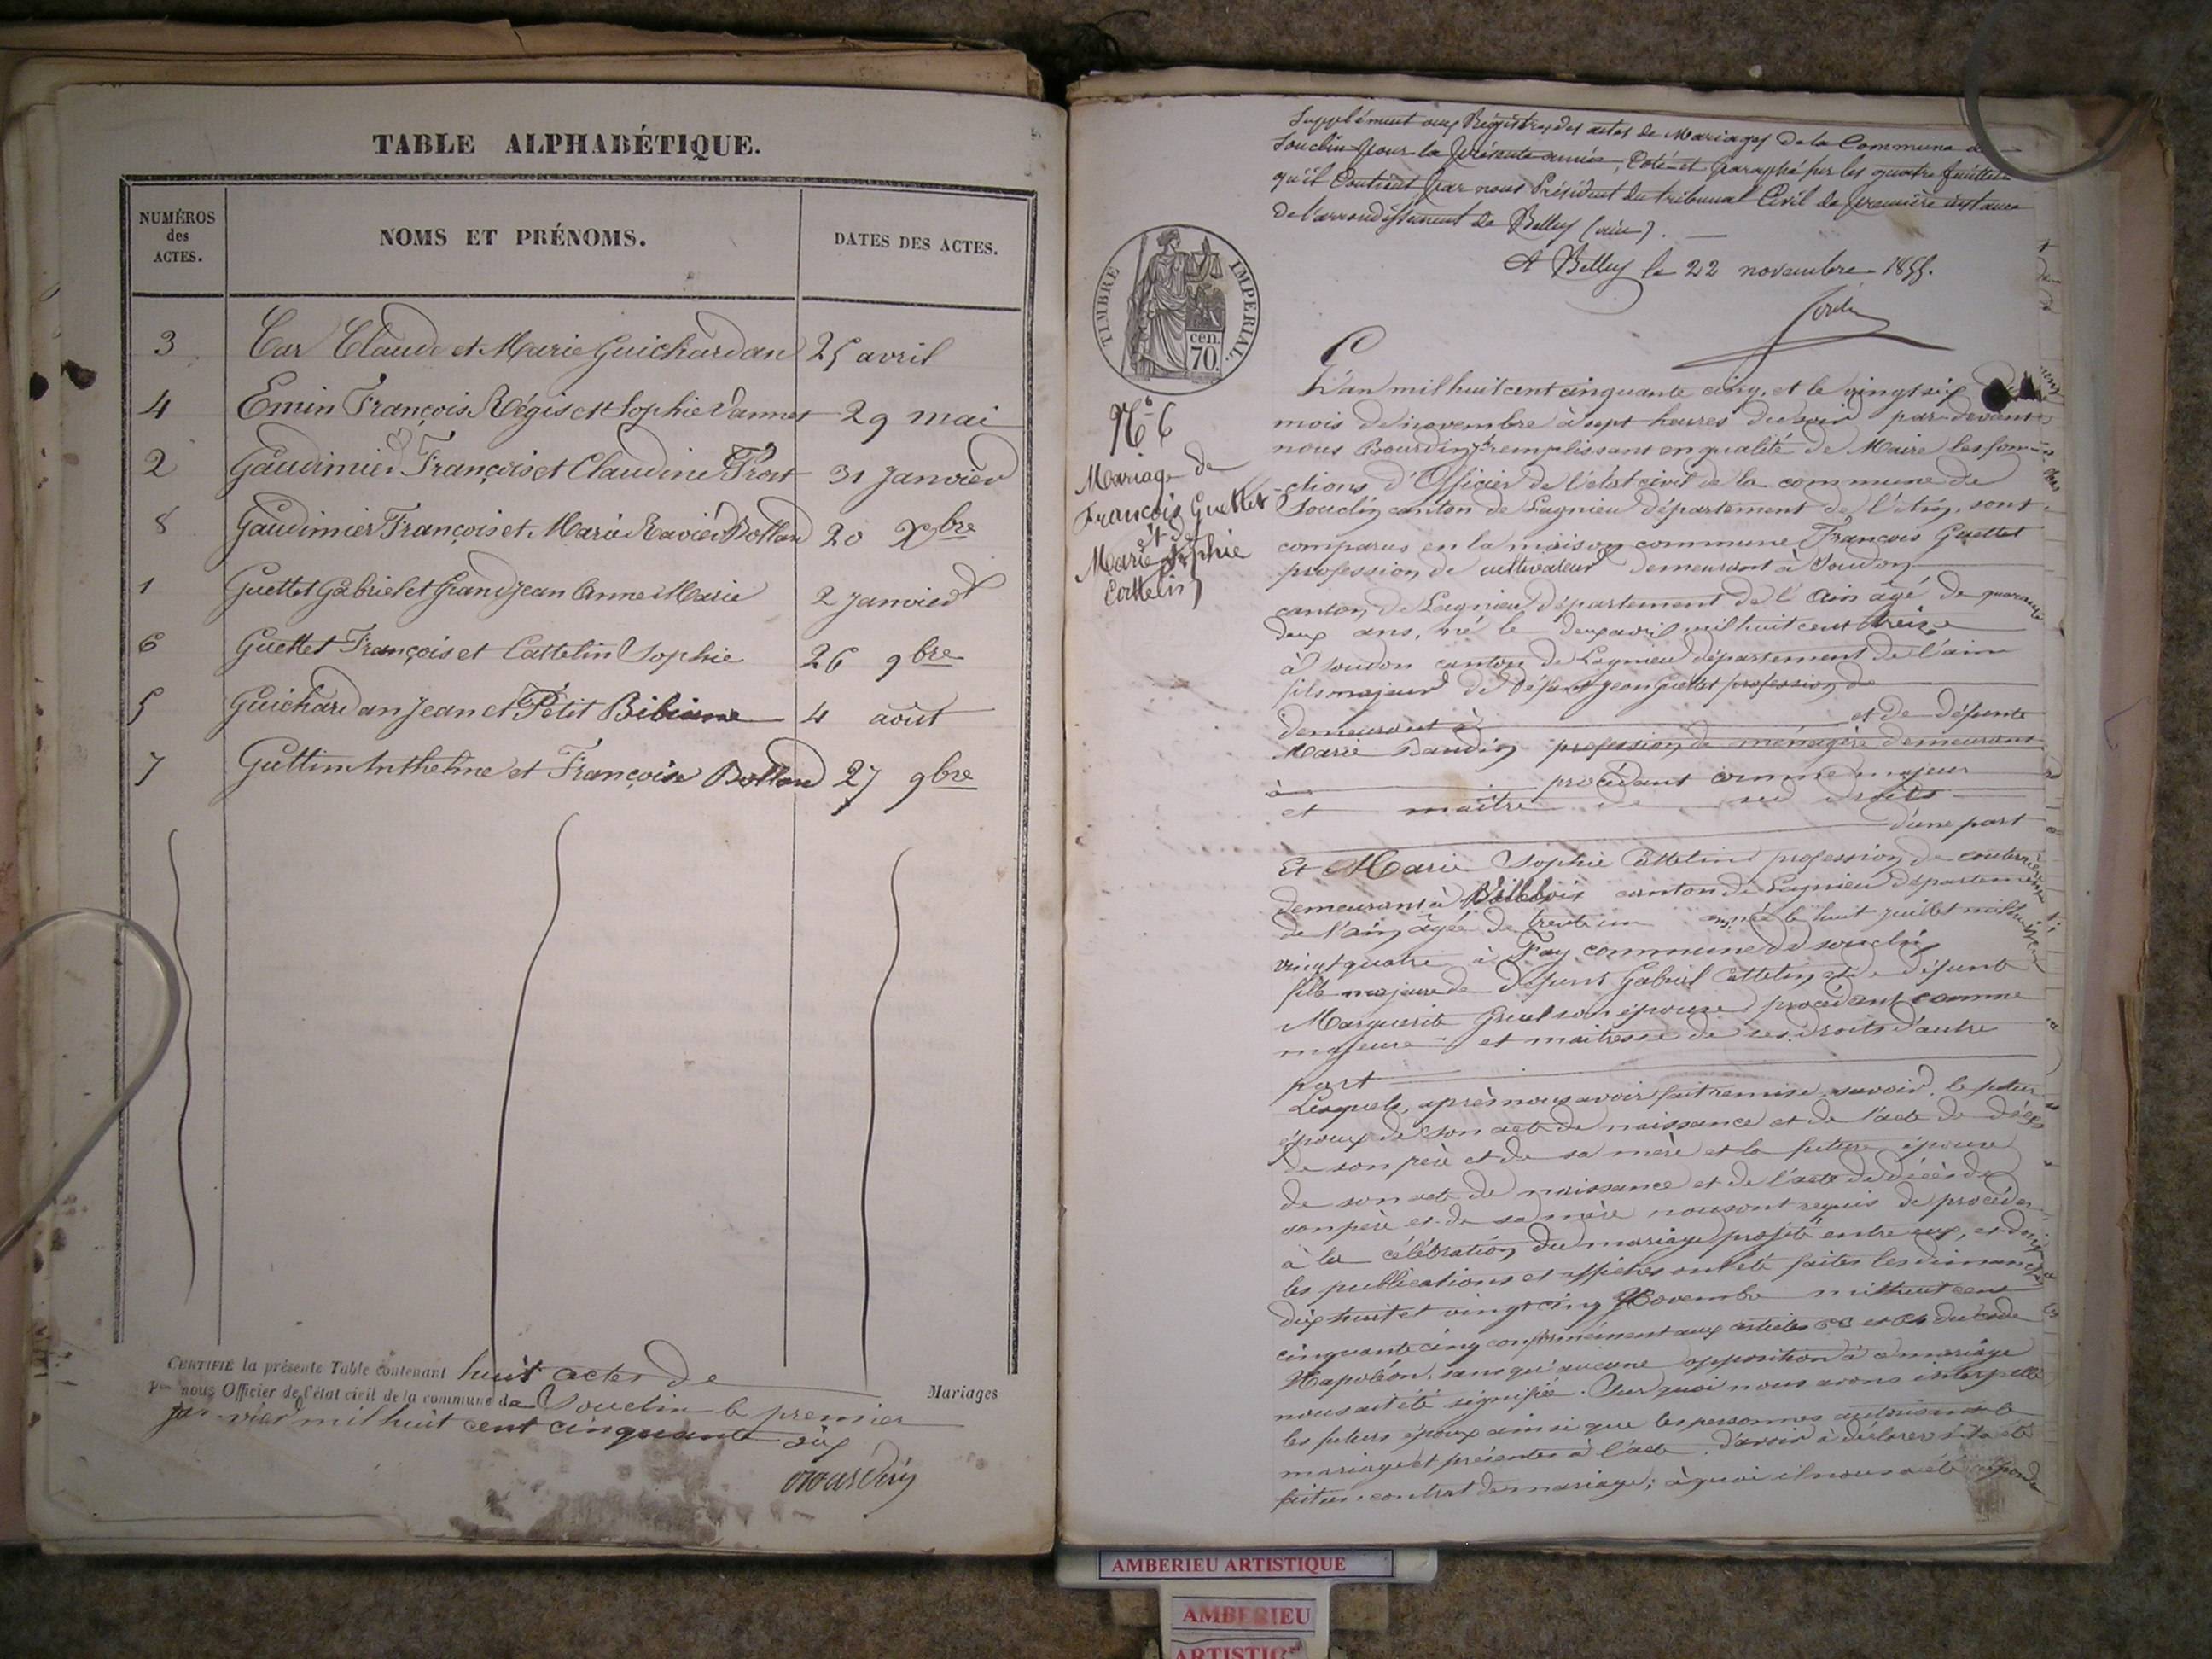 TABLE ALPHABÉTIQUE.
NUMÉROS des ACTES.
NOMS ET PRÉNOMS.
DATES DES ACTES.
3 Car Claude et Marie Guichardan 25 avril
4 Emin François Régis et Sophie Vannet 29 mai
2 Gaudimier François et Claudine Trot 31 Janvier
8 Gaudimier François et Marie Xavier Bolland 20 Xbre
1 Guettet Gabriel et Grandjean Anne Marie 2 Janvier
6 Guettet François et Cattelin Sophie 26 9bre
5 Guichardan Jean et Petit Bibianne 4 août
7 Guttin Anthelme et Françoise Bolland 27 9bre
CERTIFIÉ la présente Table contenant huit actes de Mariages
par nous Officier de l'état civil de la commune de Souclin le premier
janvier mil huit cent cinquante six
Bourdin
Supplément aux Régistres des actes de Mariages de la Commune de
Souclin pour la présente année, Coté et Paraphé sur les quatre feuillets
qu'il Contient par nous Président du tribunal Civil de première instance
de l'arrondissement de Belley (ain).
A Belley le 22 novembre 1855.
TIMBRE IMPERIAL.
cen.
70.
N° 6
Mariage de
François Guettet
et de
Marie Sophie
Cattelin
L'an mil huit cent cinquante cinq, et le vingt six
mois de novembre à sept heures du soir par devant
nous Bourdin remplissant en qualité de Maire les fon-
-ctions d'Officier de l'état civil de la commune de
Souclin canton de Lagnieu département de l'Ain, sont
comparus en la maison commune François Guettet
profession de cultivateur demeurant à Soudon
canton de Lagnieu département de l'Ain âgé de quarante
deux ans, né le deux avril mil huit cent treize
à Soudon canton de Lagnieu département de l'ain
fils majeur de défunt Jean Guettet profession de
demeurant à et de défunte
Marie Baudin profession de ménagère demeurant
à procédant comme majeur
et maître de ses droits
d'une part
Et Marie Sophie Cattelin profession de couturière
demeurant à Villebois canton de Lagnieu département
de l'ain âgée de trente un ans, née le huit juillet mil huit cent
vingt quatre à Fay commune de souclin
fille majeure de défunt Gabriel Cattelin et de défunte
Marguerite son épouse procédant comme
majeure et maitresse de ses droits d'autre
part
Lesquels, après nous avoir fait remise savoir le futur
époux de son acte de naissance et de l'acte de décès
de son père et de sa mère et la future épouse
de son acte de naissance et de l'acte de décès de
son père et de sa mère nous ont requis de procéder
à la célébration du mariage projeté entre eux, et dont
les publications et affiches ont été faites les dimanches
dix huit et vingt cinq Novembre mil huit cent
cinquante cinq conformément aux articles 63 et 64 du code
Napoléon, sans qu'aucune opposition à ce mariage
nous ait été signifiée. Sur quoi nous avons interpellé
les futurs époux ainsi que les personnes autorisant le
mariage et présentes à l'acte d'avoir à déclarer s'il a été
fait un contrat de mariage; à quoi il nous a été répondu
AMBERIEU ARTISTIQUE
AMBERIEU
ARTISTIQ